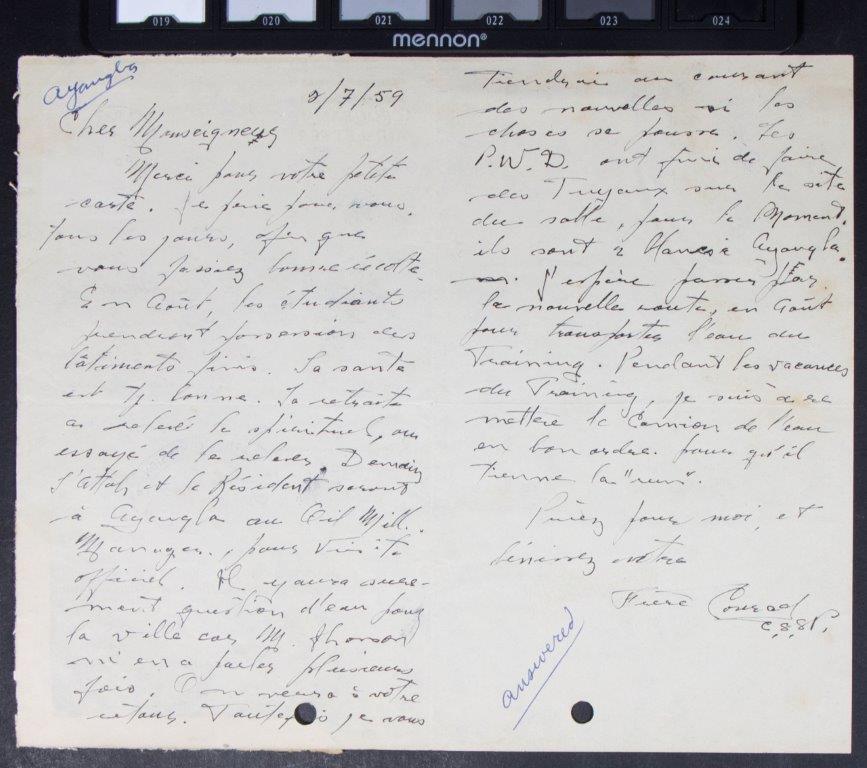 019 020 021 022 023 024
mennon®
Ayangba
2/7/59
Cher Monseigneur
Merci pour votre petite
carte. Je prie pour vous,
tous les jours, afin que
vous fassiez bonne récolte.
En Août, les étudiants
prendront possession des
bâtiments finis. La santé
est tj. bonne. La retraite
a relevé le spirituel, ou
essayé de le relever. Demain
l'Attah et le Résident seront
à Ayangba au Oil Mill.
Manager, pour visite
officiel. Il y aura sûre-
ment question d'eau pour
la ville car M.
m'en a parlé plusieurs
fois. On verra à votre
retour. Toutefois je vous
tiendrai au courant
des nouvelles si les
choses se passent. Les
P.W.D. ont fini de faire
des Tuyaux sur le site
du sable, pour le Moment.
ils sont à Ayangba.
J'espère passer par
la nouvelle route, en Août
pour transporter l'eau du
Training. Pendant les vacances
du Training, je suis à
mettre le Camion de l'eau
en bon ordre. pour qu'il
tienne la "run".
Priez pour moi, et
bénissez votre
Frère Conrad
C.S.SP.
answered